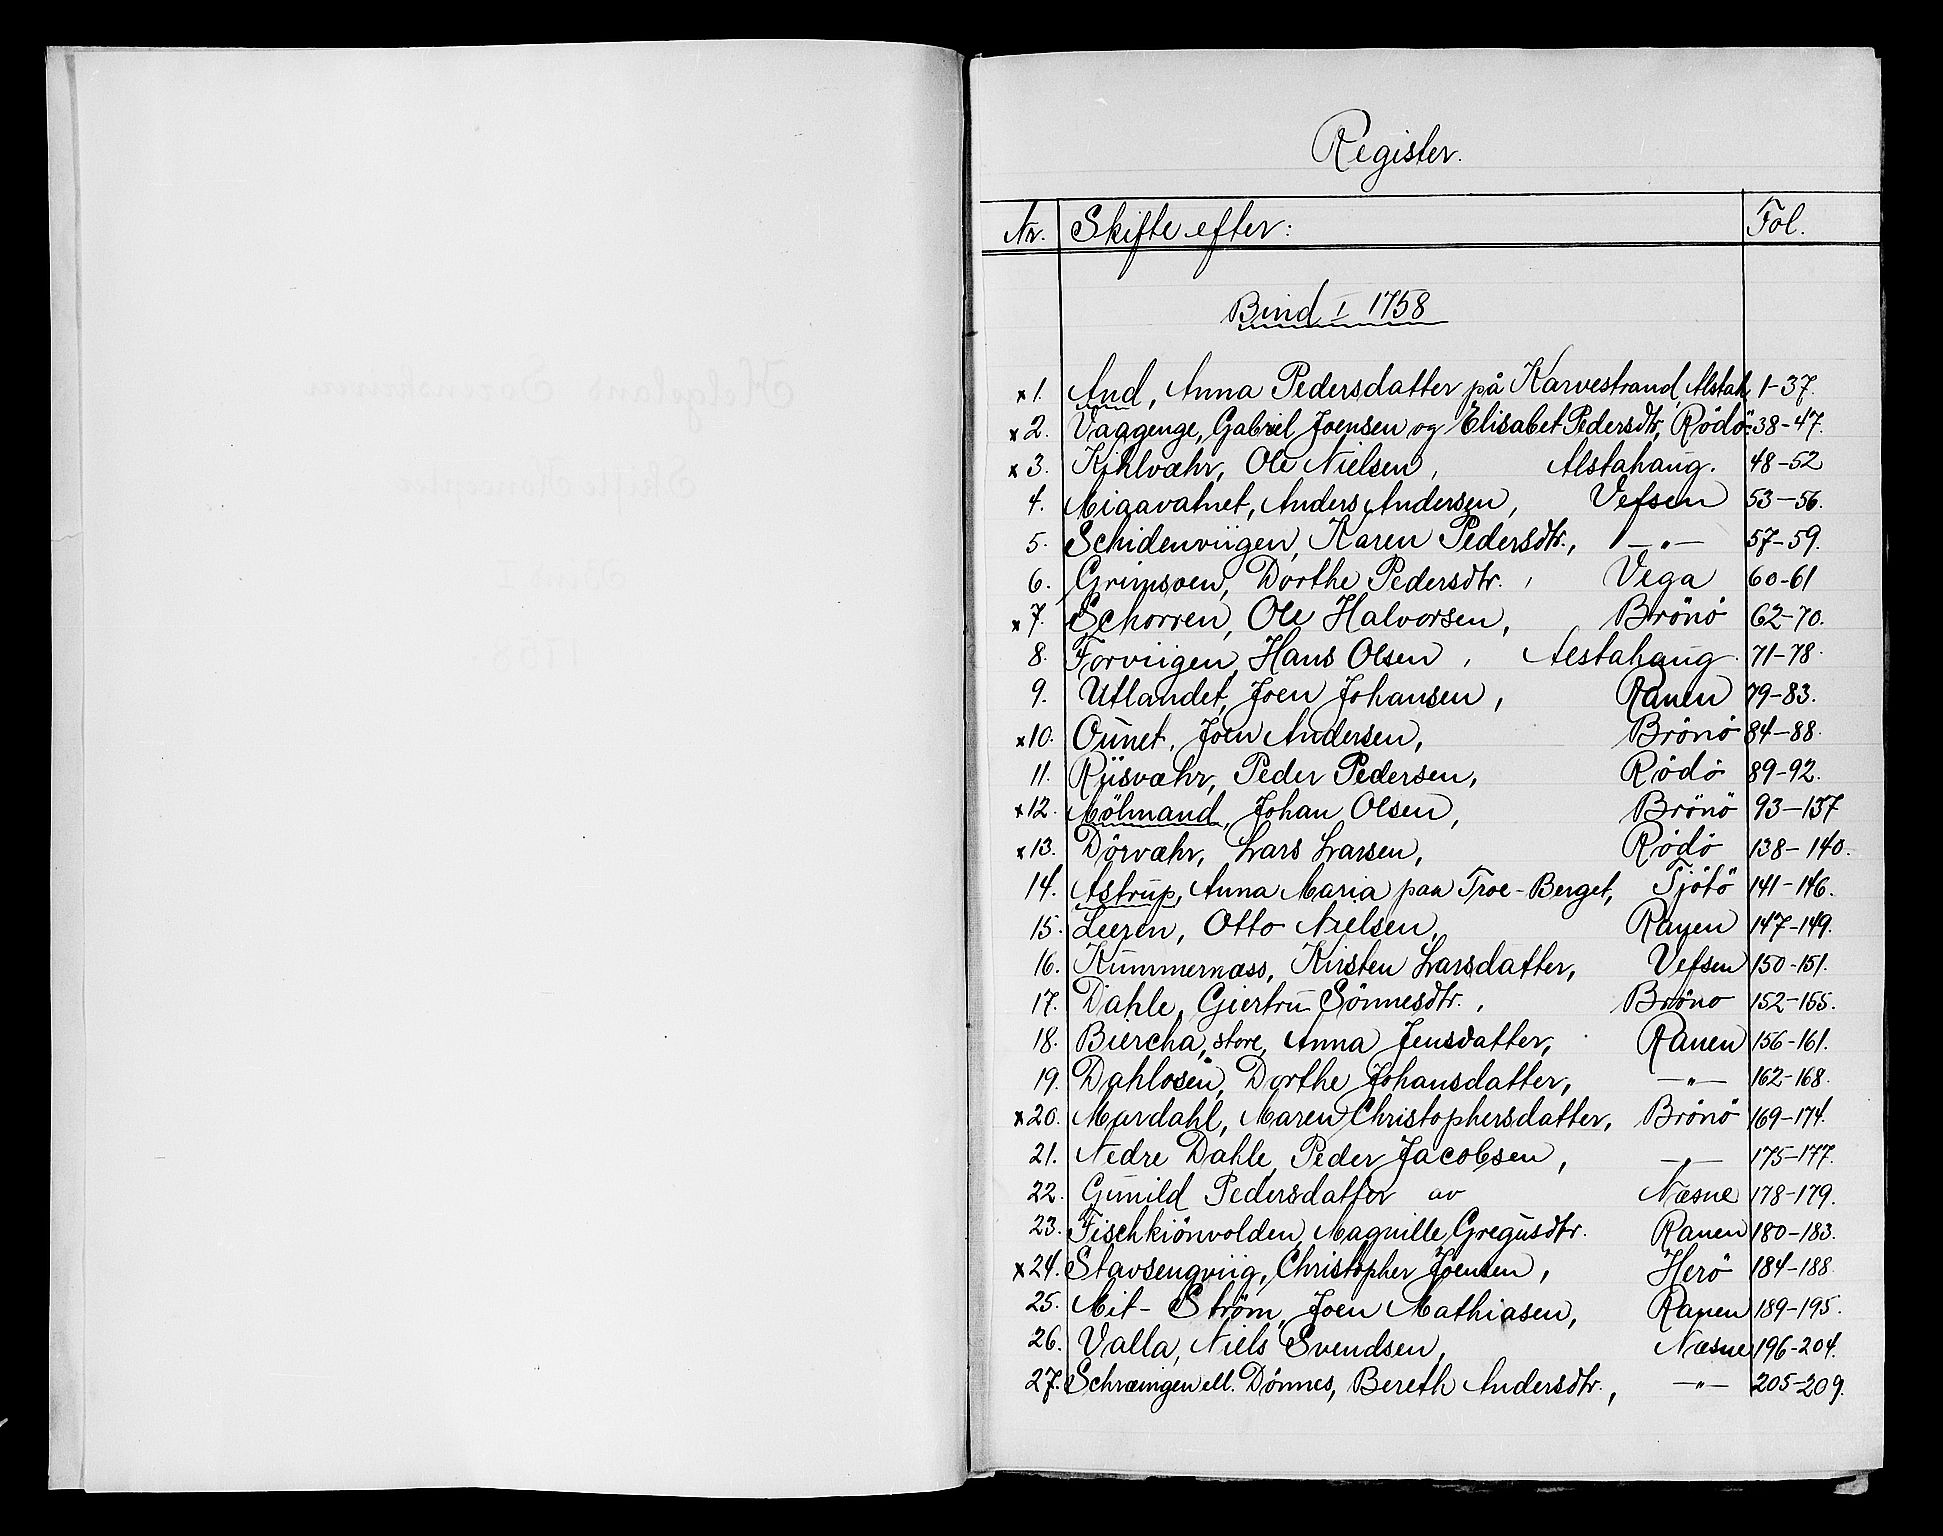 Register.
Nr. Skifte efter: Fol.
Bind I 1758
x 1. And, Anna Pedersdatter på Karvestrand, Alstah. 1-37.
x 2. Vaagenge, Gabriel Joensen og Elisabet Pedersdtr, Rödö 38-47.
x 3. Kihlvæhr, Ole Nielsen, Alstahaug. 48-52
4. Migavatnet, Anders Andersen, Vefsen 53-56.
5. Schidenviigen, Karen Pedersdtr., —"— 57-59.
6. Grimsoen, Dorthe Pedersdtr., Vega 60-61
x 7. Schorren, Ole Halvorsen, Brönö 62-70.
8. Forviigen, Hans Olsen, Alstahaug. 71-78.
9. Utlandet, Joen Johansen, Ranen 79-83.
x 10. Ounet, Joen Andersen, Brönö 84-88.
11. Riisvæhr, Peder Pedersen, Rödö 89-92.
x 12. Mölmand, Johan Olsen, Brönö 93-137
x 13. Dörvæhr, Lars Larsen, Rödö 138-140.
14. Astrup, Anna Maria paa Troe-Berget, Tjötö 141-146.
15. Leeren, Otto Nielsen, Ranen 147-149.
16. Kummernæss, Kirsten Larsdatter, Vefsen 150-151.
17. Dahle, Giertru Sönnesdtr., Bröno 152-155.
18. Biercha, store, Anna Jensdatter, Ranen 156-161.
19. Dahlosen, Dorthe Johansdatter, —"— 162-168.
x 20. Mardahl, Maren Christophersdatter, Brönö 169-174.
21. Nedre Dahle, Peder Jacobsen, —"— 175-177.
22. Gunild Pedersdatter av Næsne 178-179.
23. Fischkiönvolden, Magnille Gregusdtr. Ranen 180-183.
x 24. Stavsengviig, Christopher Joensen, Herö 184-188
25. Mit-Ström, Joen Mathiasen, Ranen 189-195.
26. Valla, Niels Svendsen, Næsne 196-204.
27. Schvæingen ell. Dönnes, Bereth Andersdtr., —"— 205-209.